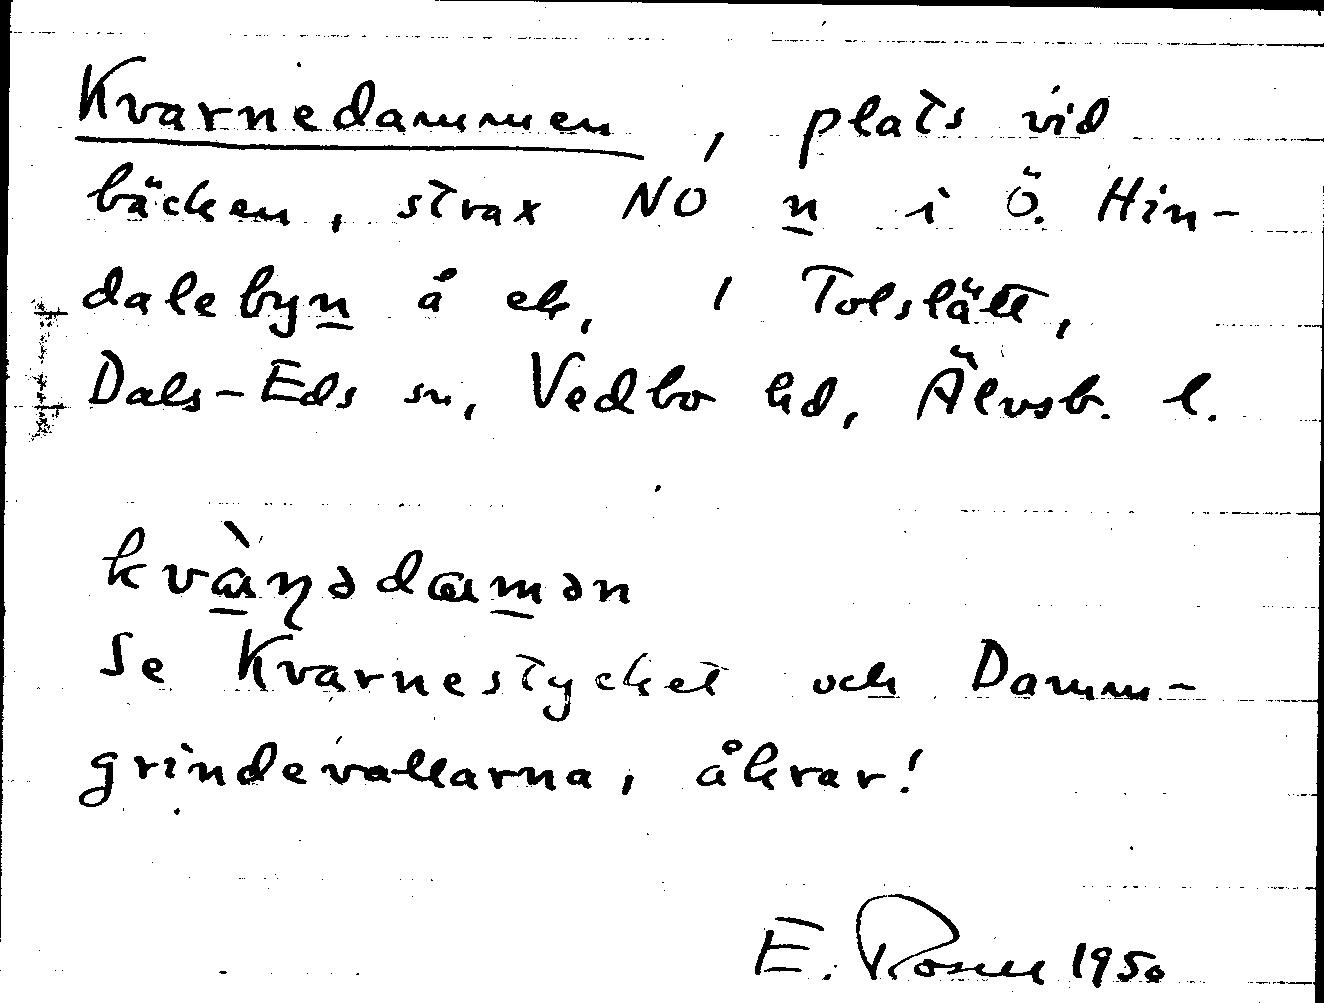 Kvarnedammen, plats vid
bäcken, strax NO n i Ö. Hin-
dalebyn å ek, 1 Tolslätt,
Dals-Eds sn, Vedbo hd, Älvsb. l.
kvàɳədamən
Se Kvarnestycket och Damm-
grindevallarna, åkrar!
E. 1950